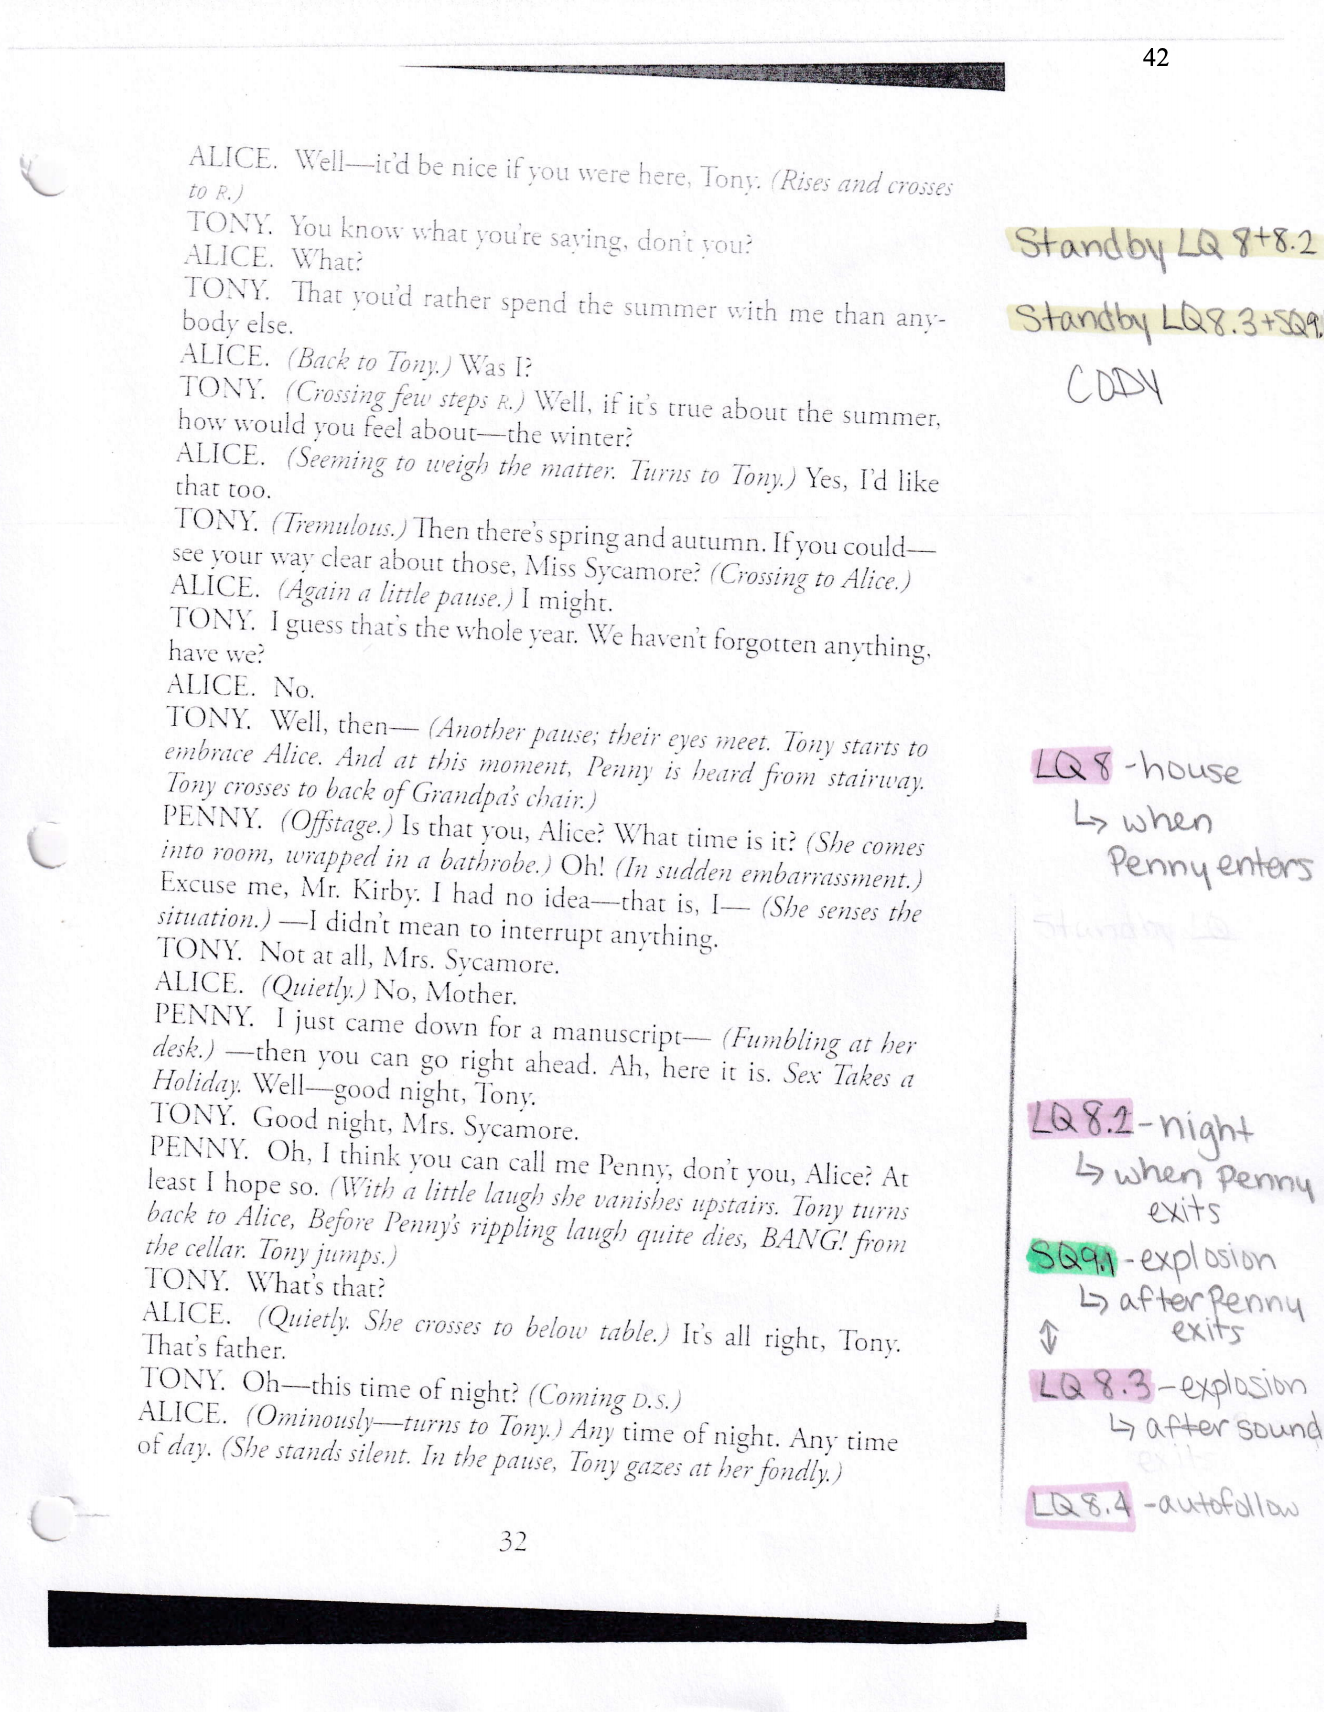 42
ALICE. Well—it'd be nice if you were here, Tony. (Rises and crosses
to R.)
TONY. You know what you're saying, don't you?
ALICE. What?
TONY. That you'd rather spend the summer with me than any-
body else.
ALICE. (Back to Tony.) Was I?
TONY. (Crossing few steps R.) Well, if it's true about the summer,
how would you feel about—the winter?
ALICE. (Seeming to weigh the matter. Turns to Tony.) Yes, I'd like
that too.
TONY. (Tremulous.) Then there's spring and autumn. If you could—
see your way clear about those, Miss Sycamore? (Crossing to Alice.)
ALICE. (Again a little pause.) I might.
TONY. I guess that's the whole year. We haven't forgotten anything,
have we?
ALICE. No.
TONY. Well, then— (Another pause; their eyes meet. Tony starts to
embrace Alice. And at this moment, Penny is heard from stairway.
Tony crosses to back of Grandpa's chair.)
PENNY. (Offstage.) Is that you, Alice? What time is it? (She comes
into room, wrapped in a bathrobe.) Oh! (In sudden embarrassment.)
Excuse me, Mr. Kirby. I had no idea—that is, I— (She senses the
situation.) —I didn't mean to interrupt anything.
TONY. Not at all, Mrs. Sycamore.
ALICE. (Quietly.) No, Mother.
PENNY. I just came down for a manuscript— (Fumbling at her
desk.) —then you can go right ahead. Ah, here it is. Sex Takes a
Holiday. Well—good night, Tony.
TONY. Good night, Mrs. Sycamore.
PENNY. Oh, I think you can call me Penny, don't you, Alice? At
least I hope so. (With a little laugh she vanishes upstairs. Tony turns
back to Alice, Before Penny's rippling laugh quite dies, BANG! from
the cellar. Tony jumps.)
TONY. What's that?
ALICE. (Quietly. She crosses to below table.) It's all right, Tony.
That's father.
TONY. Oh—this time of night? (Coming D.S.)
ALICE. (Ominously—turns to Tony.) Any time of night. Any time
of day. (She stands silent. In the pause, Tony gazes at her fondly.)
32
Standby LQ 8+8.2
Standby LQ8.3+SQ9.
CODY
LQ8 - house
↳ when
Penny enters
LQ8.2 - night
↳ when Penny
exits
SQ9.1 - explosion
↳ after Penny
exits
↕
LQ 8.3 - explosion
↳ after sound
LQ8.4 - autofollow